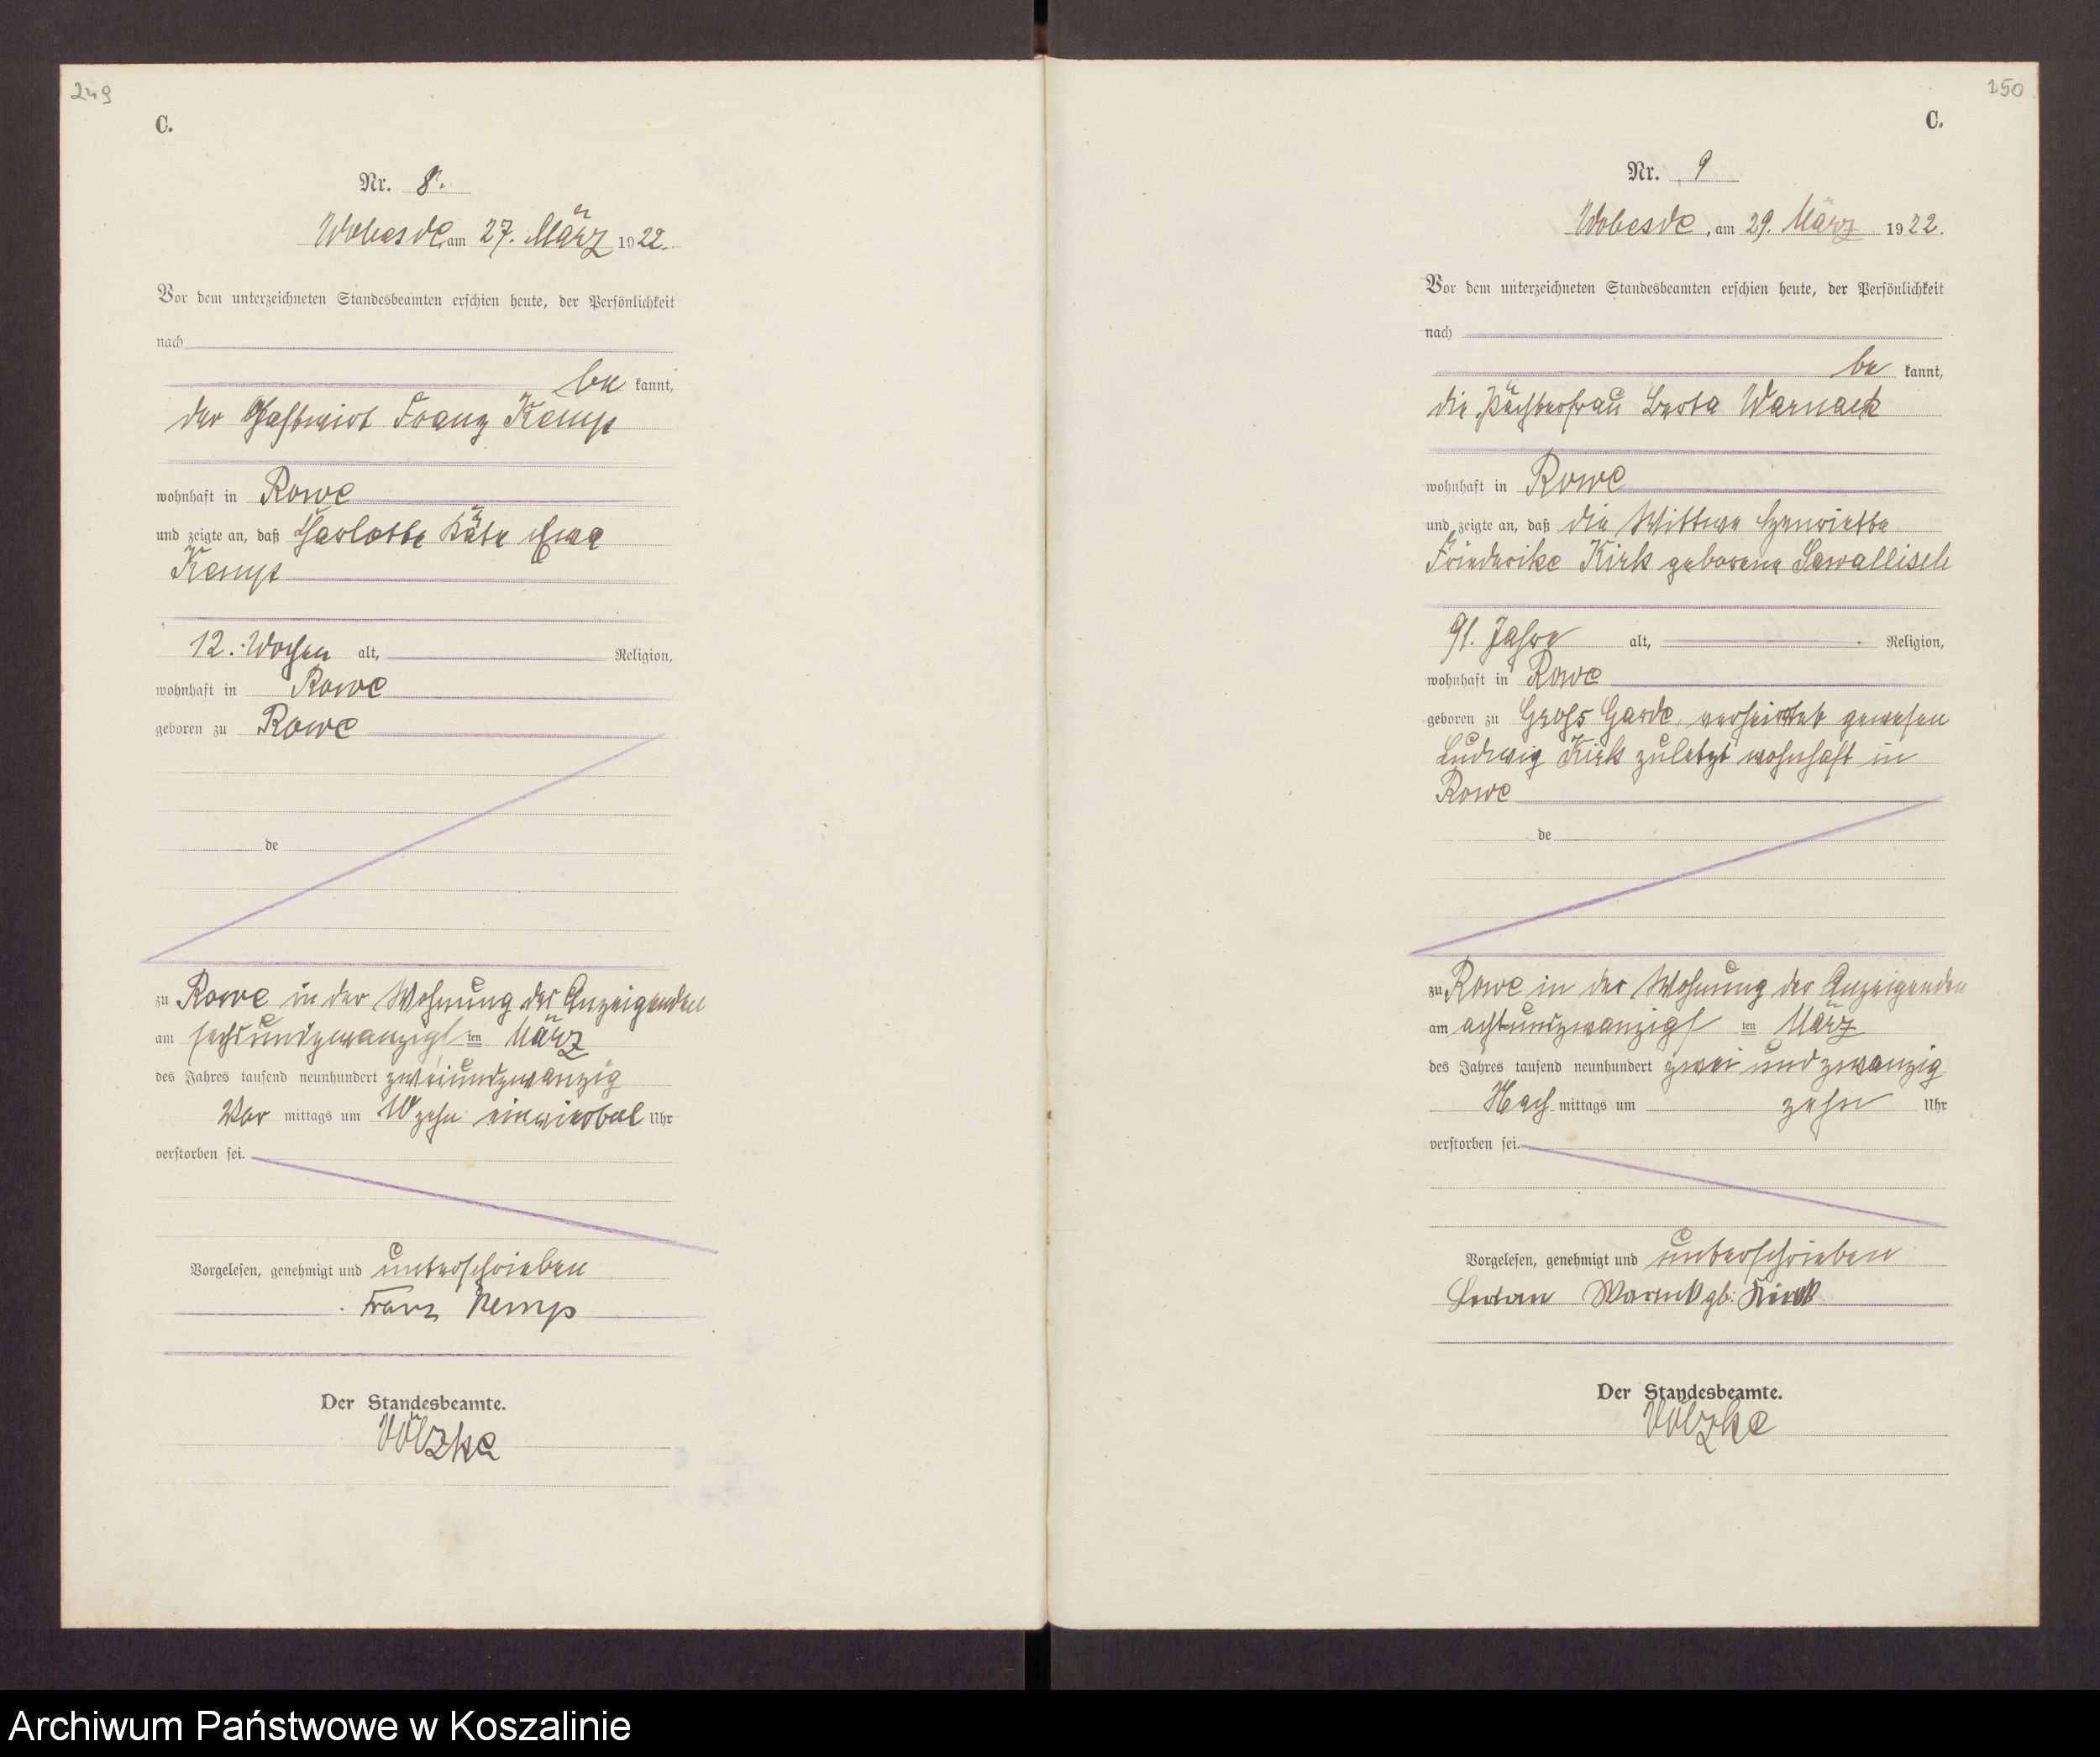 249
C.
Nr. 8.
Wobesde, am 27. März 1922.
Vor dem unterzeichneten Standesbeamten erschien heute, der Persönlichkeit
nach
be kannt,
der Gastwirt Franz Kemp
wohnhaft in Rowe
und zeigte an, daß Charlotte Käte Ewa
Kemp
12. Wochen alt, Religion,
wohnhaft in Rowe
geboren zu Rowe
de
zu Rowe in der Wohnung des Anzeigenden
am sechsundzwanzigsten März
des Jahres tausend neunhundert zweiundzwanzig
Vor mittags um zehn einviertel Uhr
verstorben sei.
Vorgelesen, genehmigt und unterschrieben
Franz Kemp
Der Standesbeamte.
Völzke
150
C.
Nr. 9
Wobesde, am 29. März 1922.
Vor dem unterzeichneten Standesbeamten erschien heute, der Persönlichkeit
nach
be kannt,
die Pächterfrau Berta Warnack
wohnhaft in Rowe
und zeigte an, daß die Wittwe Henriette
Friederike Kirk geborene Sawallisch
91. Jahre alt, Religion,
wohnhaft in Rowe
geboren zu Groß Garde verheiratet gewesen
Ludwig Kirk zuletzt wohnhaft in
Rowe
de
zu Rowe in der Wohnung der Anzeigenden
am achtundzwanzigsten März
des Jahres tausend neunhundert zwei und zwanzig
Nach mittags um zehn Uhr
verstorben sei.
Vorgelesen, genehmigt und unterschrieben
gb:
Der Standesbeamte.
Völzke
Archiwum Państwowe w Koszalinie